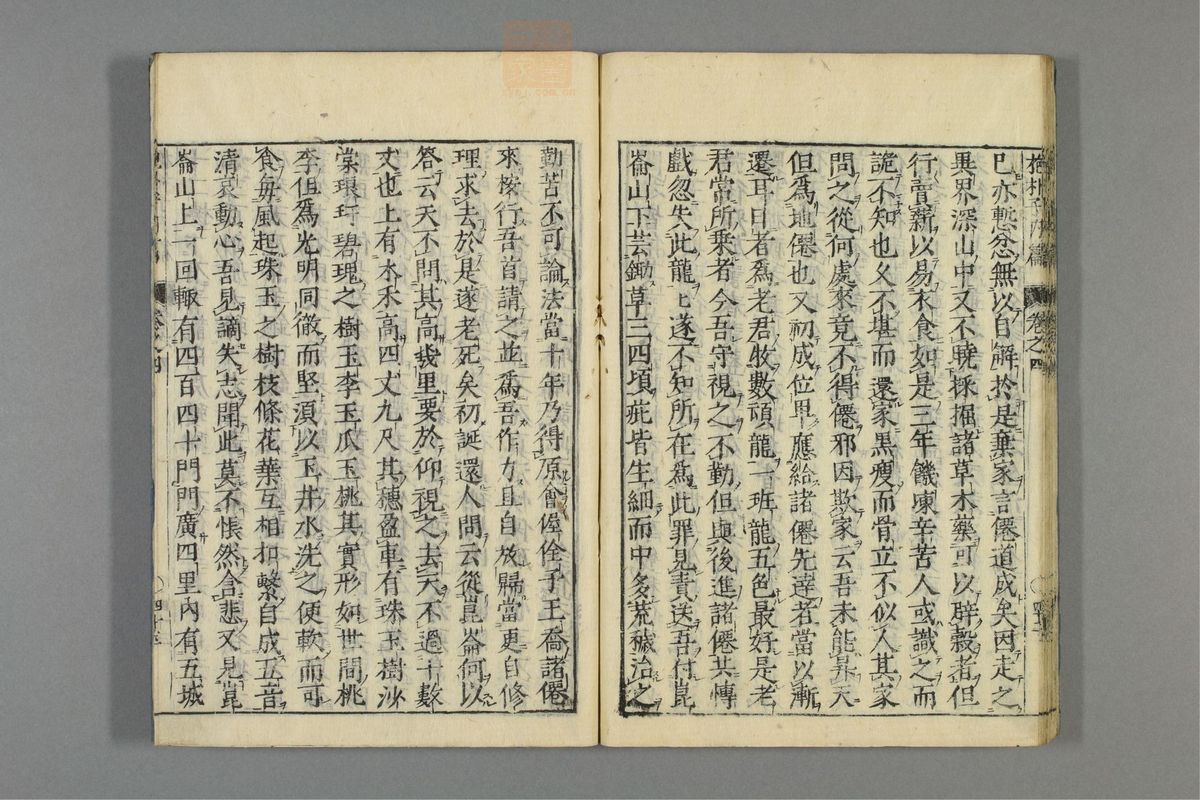 抱朴子內篇 卷之四 四十三
已亦慙忿無以自解於是棄家言僊道成矣因走之
異界深山中又不曉採掘諸草木藥可以辟穀者但
行賣薪以易衣食如是三年饑凍辛苦人或識之而
詭不知也久不堪而還家黑瘦而骨立不似人其家
問之從何處來竟不得僊邪因欺家云吾未能昇天
但為地僊也又初成位卑應給諸僊先達者當以漸
遷耳曰者為老君牧數頭龍一班龍五色最好是老
君常所乗者今吾守視之不勤但與後進諸僊共博
戲忽失此龍龍遂不知所在為此罪見責送吾付崑
崙山下芸鋤草三四頃疵皆生細而中多荒穢治之
勤苦不可論法當十年乃得原會偓佺子王喬諸僊
來桉行吾首請之並為吾作力且自放歸當更自修
理求去於是遂老死矣初誕還人問云從崑崙何以
答云天不問其高幾里要於仰視之去天不過十數
丈也上有木禾高四丈九尺其穗盈車有珠玉樹沙
棠琅玕碧瑰之樹玉李玉瓜玉桃其實形如世間桃
李但為光明同徹而堅須以玉井水洗之便軟而可
食每風起珠玉之樹枝條花華互相扣擊自成五音
清哀動心吾見謫失志聞此莫不悵然含悲又見崑
崙山上一回輙有四百四十門門廣四里內有五城